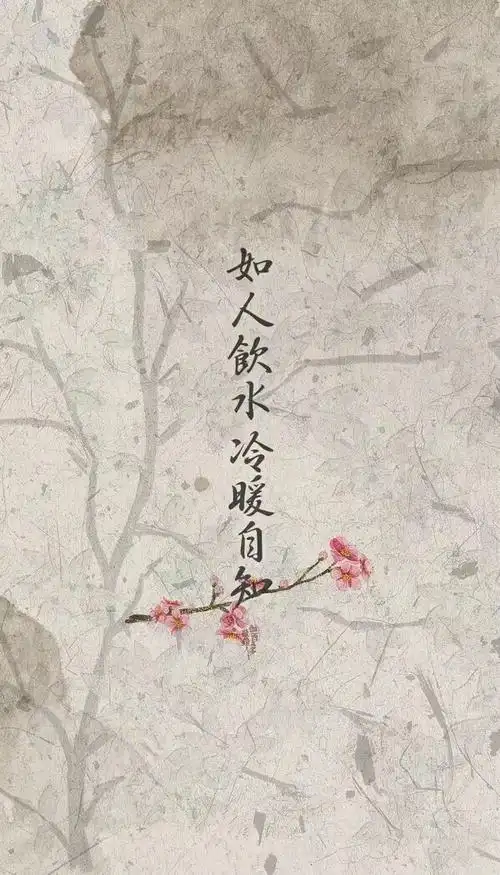 如人飲水冷暖自知